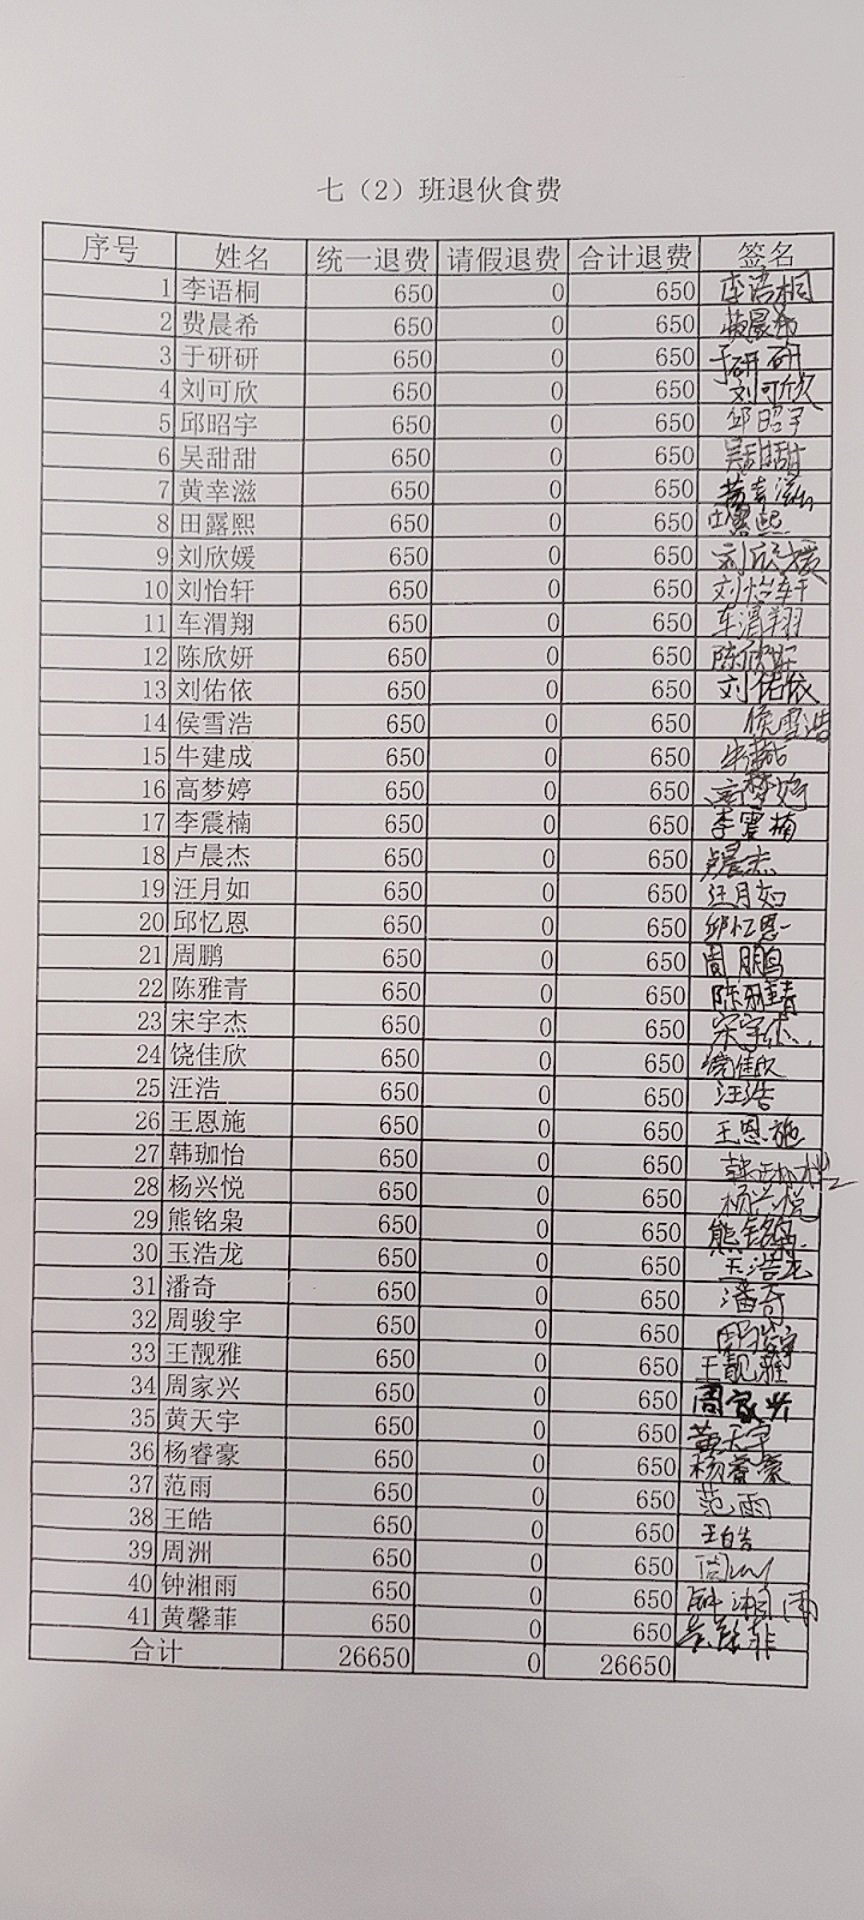 七（2）班退伙食费
序号 姓名 统一退费 请假退费 合计退费 签名
1 李语桐 650 0 650 李语桐
2 费晨希 650 0 650 费晨希
3 于研研 650 0 650 于研研
4 刘可欣 650 0 650 刘可欣
5 邱昭宇 650 0 650 邱昭宇
6 吴甜甜 650 0 650 吴甜甜
7 黄幸滋 650 0 650 黄幸滋
8 田露熙 650 0 650 田露熙
9 刘欣媛 650 0 650 刘欣媛
10 刘怡轩 650 0 650 刘怡轩
11 车渭翔 650 0 650 车渭翔
12 陈欣妍 650 0 650 陈欣妍
13 刘佑依 650 0 650 刘佑依
14 侯雪浩 650 0 650 侯雪浩
15 牛建成 650 0 650 牛建成
16 高梦婷 650 0 650 高梦婷
17 李震楠 650 0 650 李震楠
18 卢晨杰 650 0 650 卢晨杰
19 汪月如 650 0 650 汪月如
20 邱忆恩 650 0 650 邱忆恩
21 周鹏 650 0 650 周鹏
22 陈雅青 650 0 650 陈雅青
23 宋宇杰 650 0 650 宋宇杰
24 饶佳欣 650 0 650 饶佳欣
25 汪浩 650 0 650 汪浩
26 王恩施 650 0 650 王恩施
27 韩珈怡 650 0 650
28 杨兴悦 650 0 650 杨兴悦
29 熊铭枭 650 0 650 熊铭枭
30 玉浩龙 650 0 650 玉浩龙
31 潘奇 650 0 650 潘奇
32 周骏宇 650 0 650 周骏宇
33 王靓雅 650 0 650 王靓雅
34 周家兴 650 0 650 周家兴
35 黄天宇 650 0 650 黄天宇
36 杨睿豪 650 0 650 杨睿豪
37 范雨 650 0 650 范雨
38 王皓 650 0 650 王皓
39 周洲 650 0 650 周洲
40 钟湘雨 650 0 650 钟湘雨
41 黄馨菲 650 0 650
合计 26650 0 26650